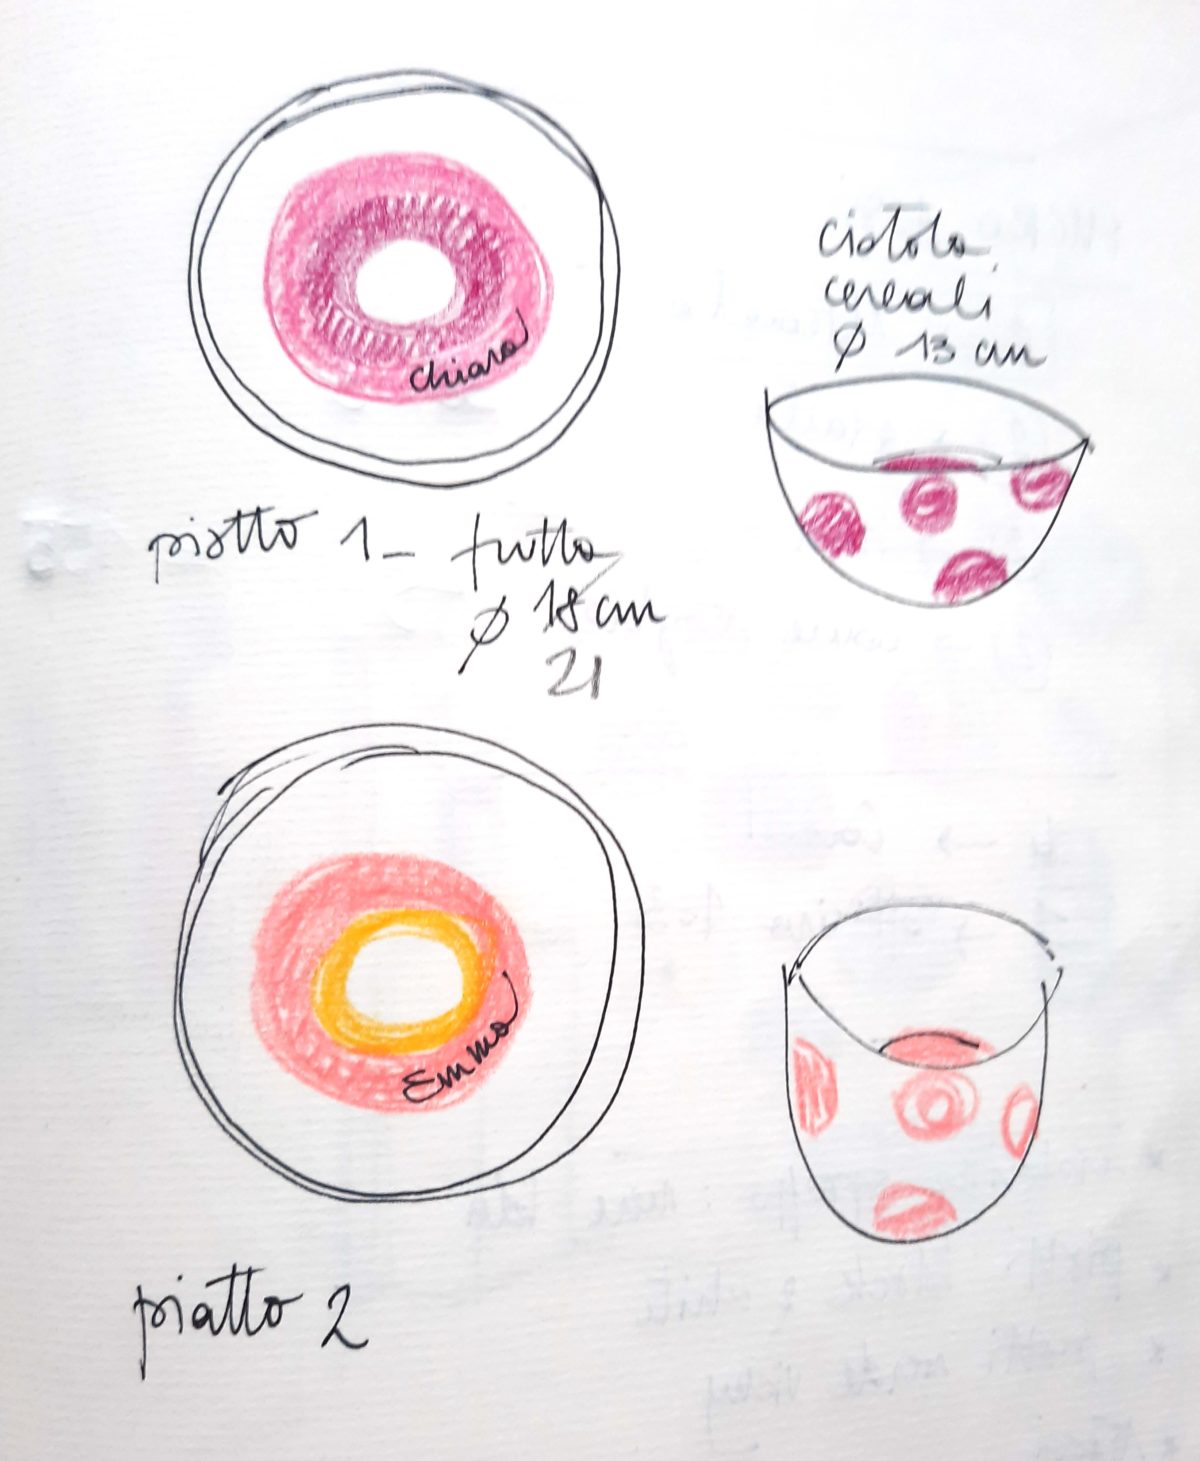 Chiara
ciotola
cereali
Ø 13 cm
piatto 1 – frutta
Ø 18 cm
21
Emma
piatto 2